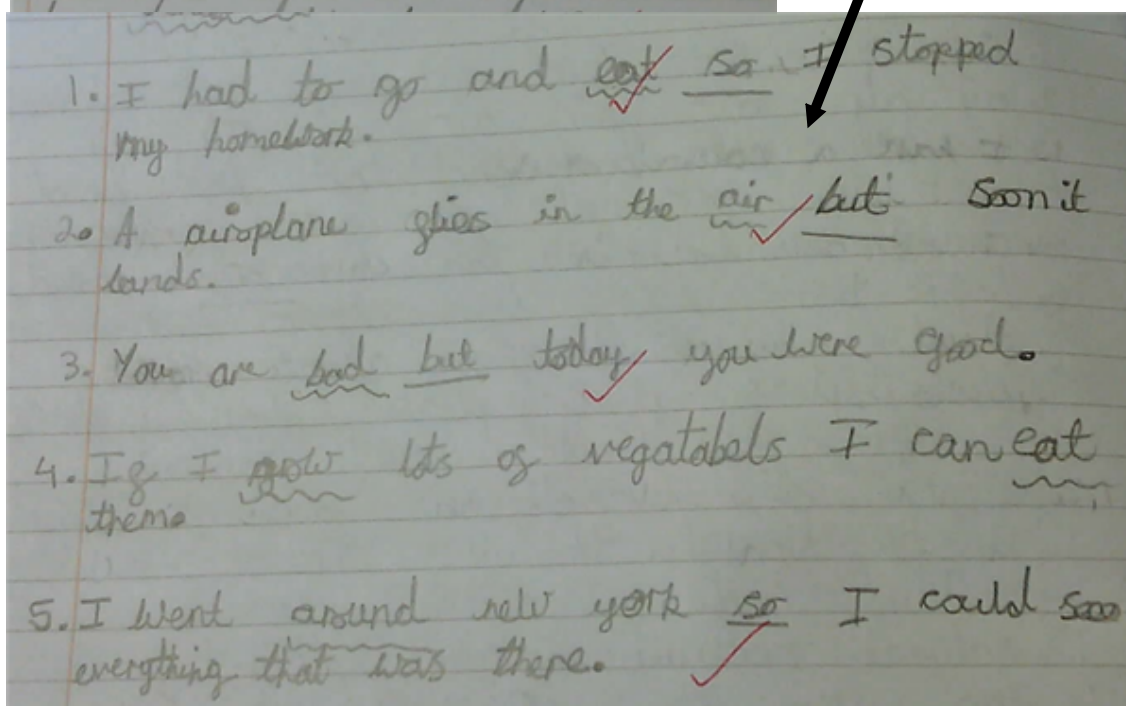 1. I had to go and eat so I stopped
my homework.
2. A airoplane flies in the air but soon it
lands.
3. You are bad but today you were good.
4. If I grow lots of vegatabels I can eat
them.
5. I went around new york so I could
everything that was there.